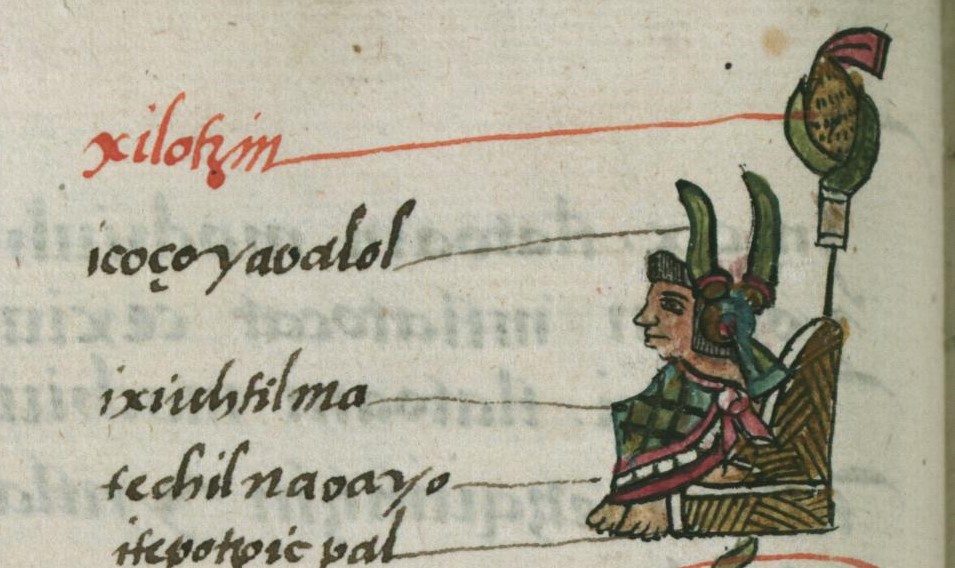 xilotzin
icoçoyavalol
ixiuhtilma
techilnavayo
itepotzoicpal